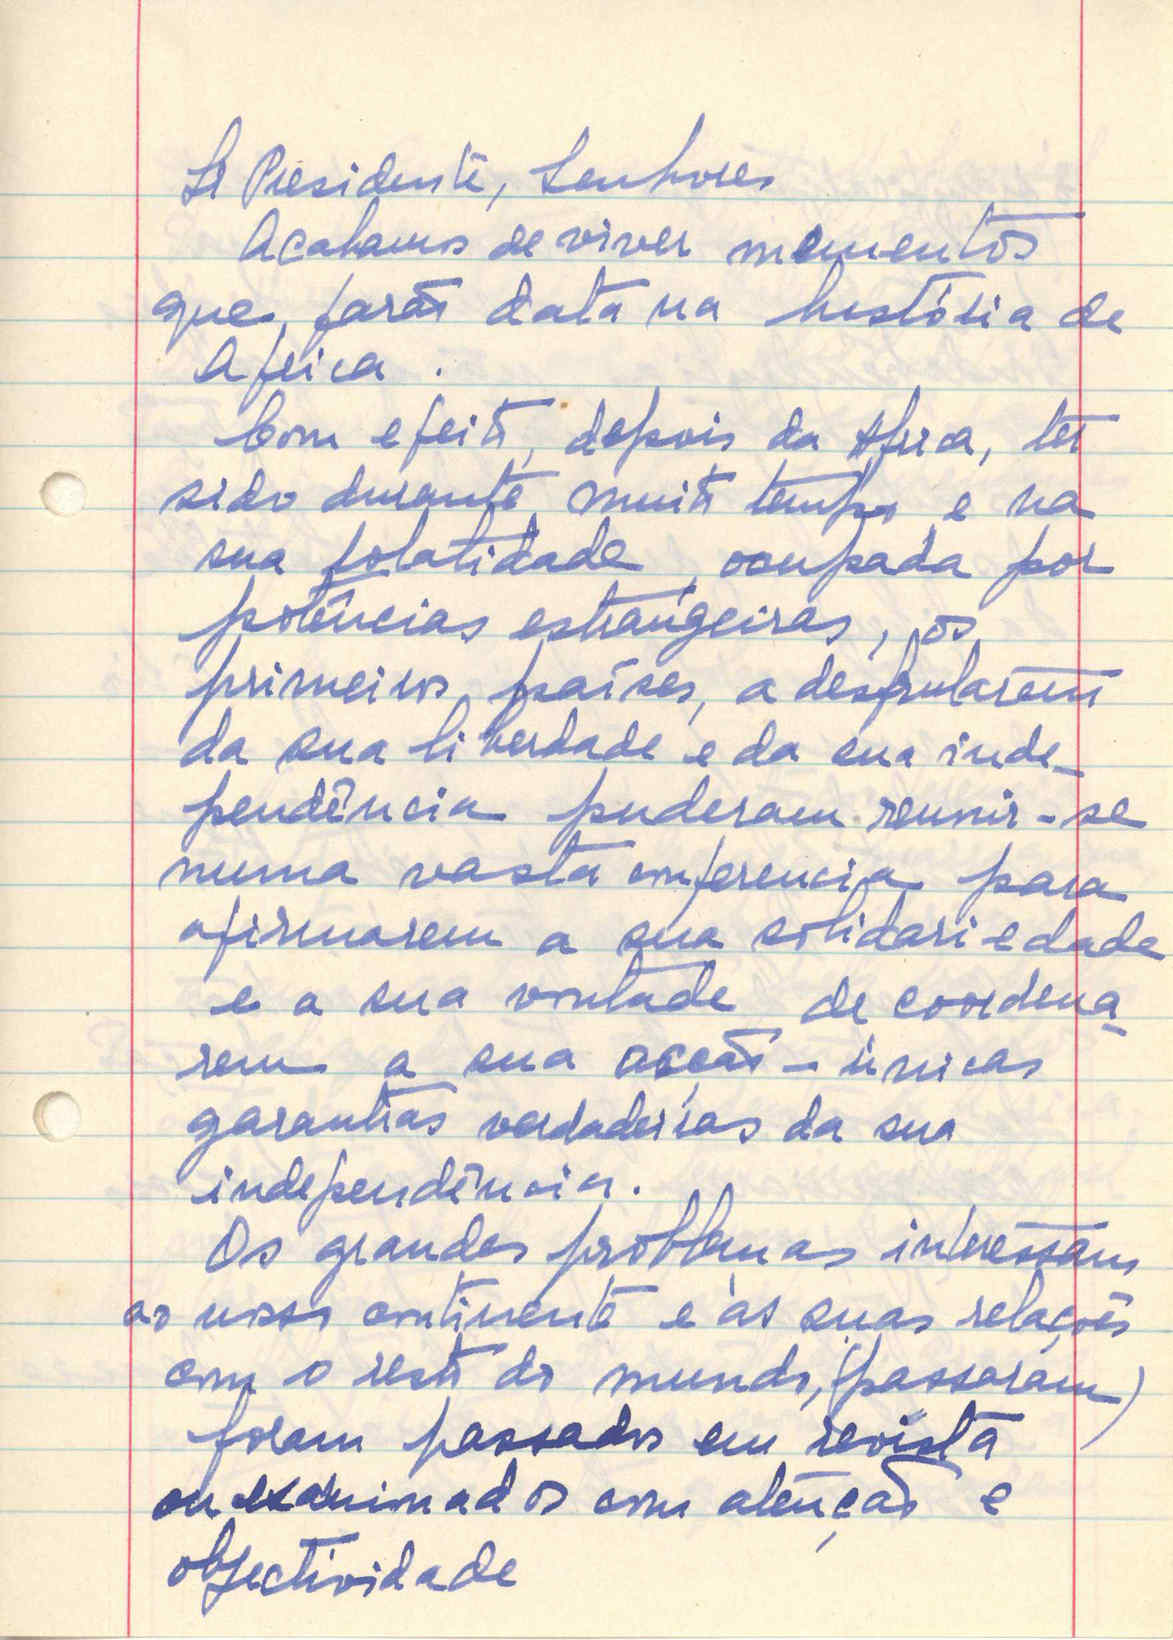 Sr Presidente, Senhores
Acabamos de viver momentos
que farão data na história de
Africa.
Com efeito, depois da Africa, ter
sido durante muito tempo e na
sua totalidade, ocupada por
potências estrangeiras, os
primeiros países, a desfrutarem
da sua liberdade e da sua inde-
pendência puderam reunir-se
numa vasta conferencia para
afirmarem a sua solidariedade
e a sua vontade de coordena-
rem a sua acção - únicas
garantias verdadeiras da sua
independência.
Os grandes problemas interessam
ao nosso continente e às suas relações
com o resto do mundo, (passaram)
foram passados em revista
ou examinados com atenção e
objectividade